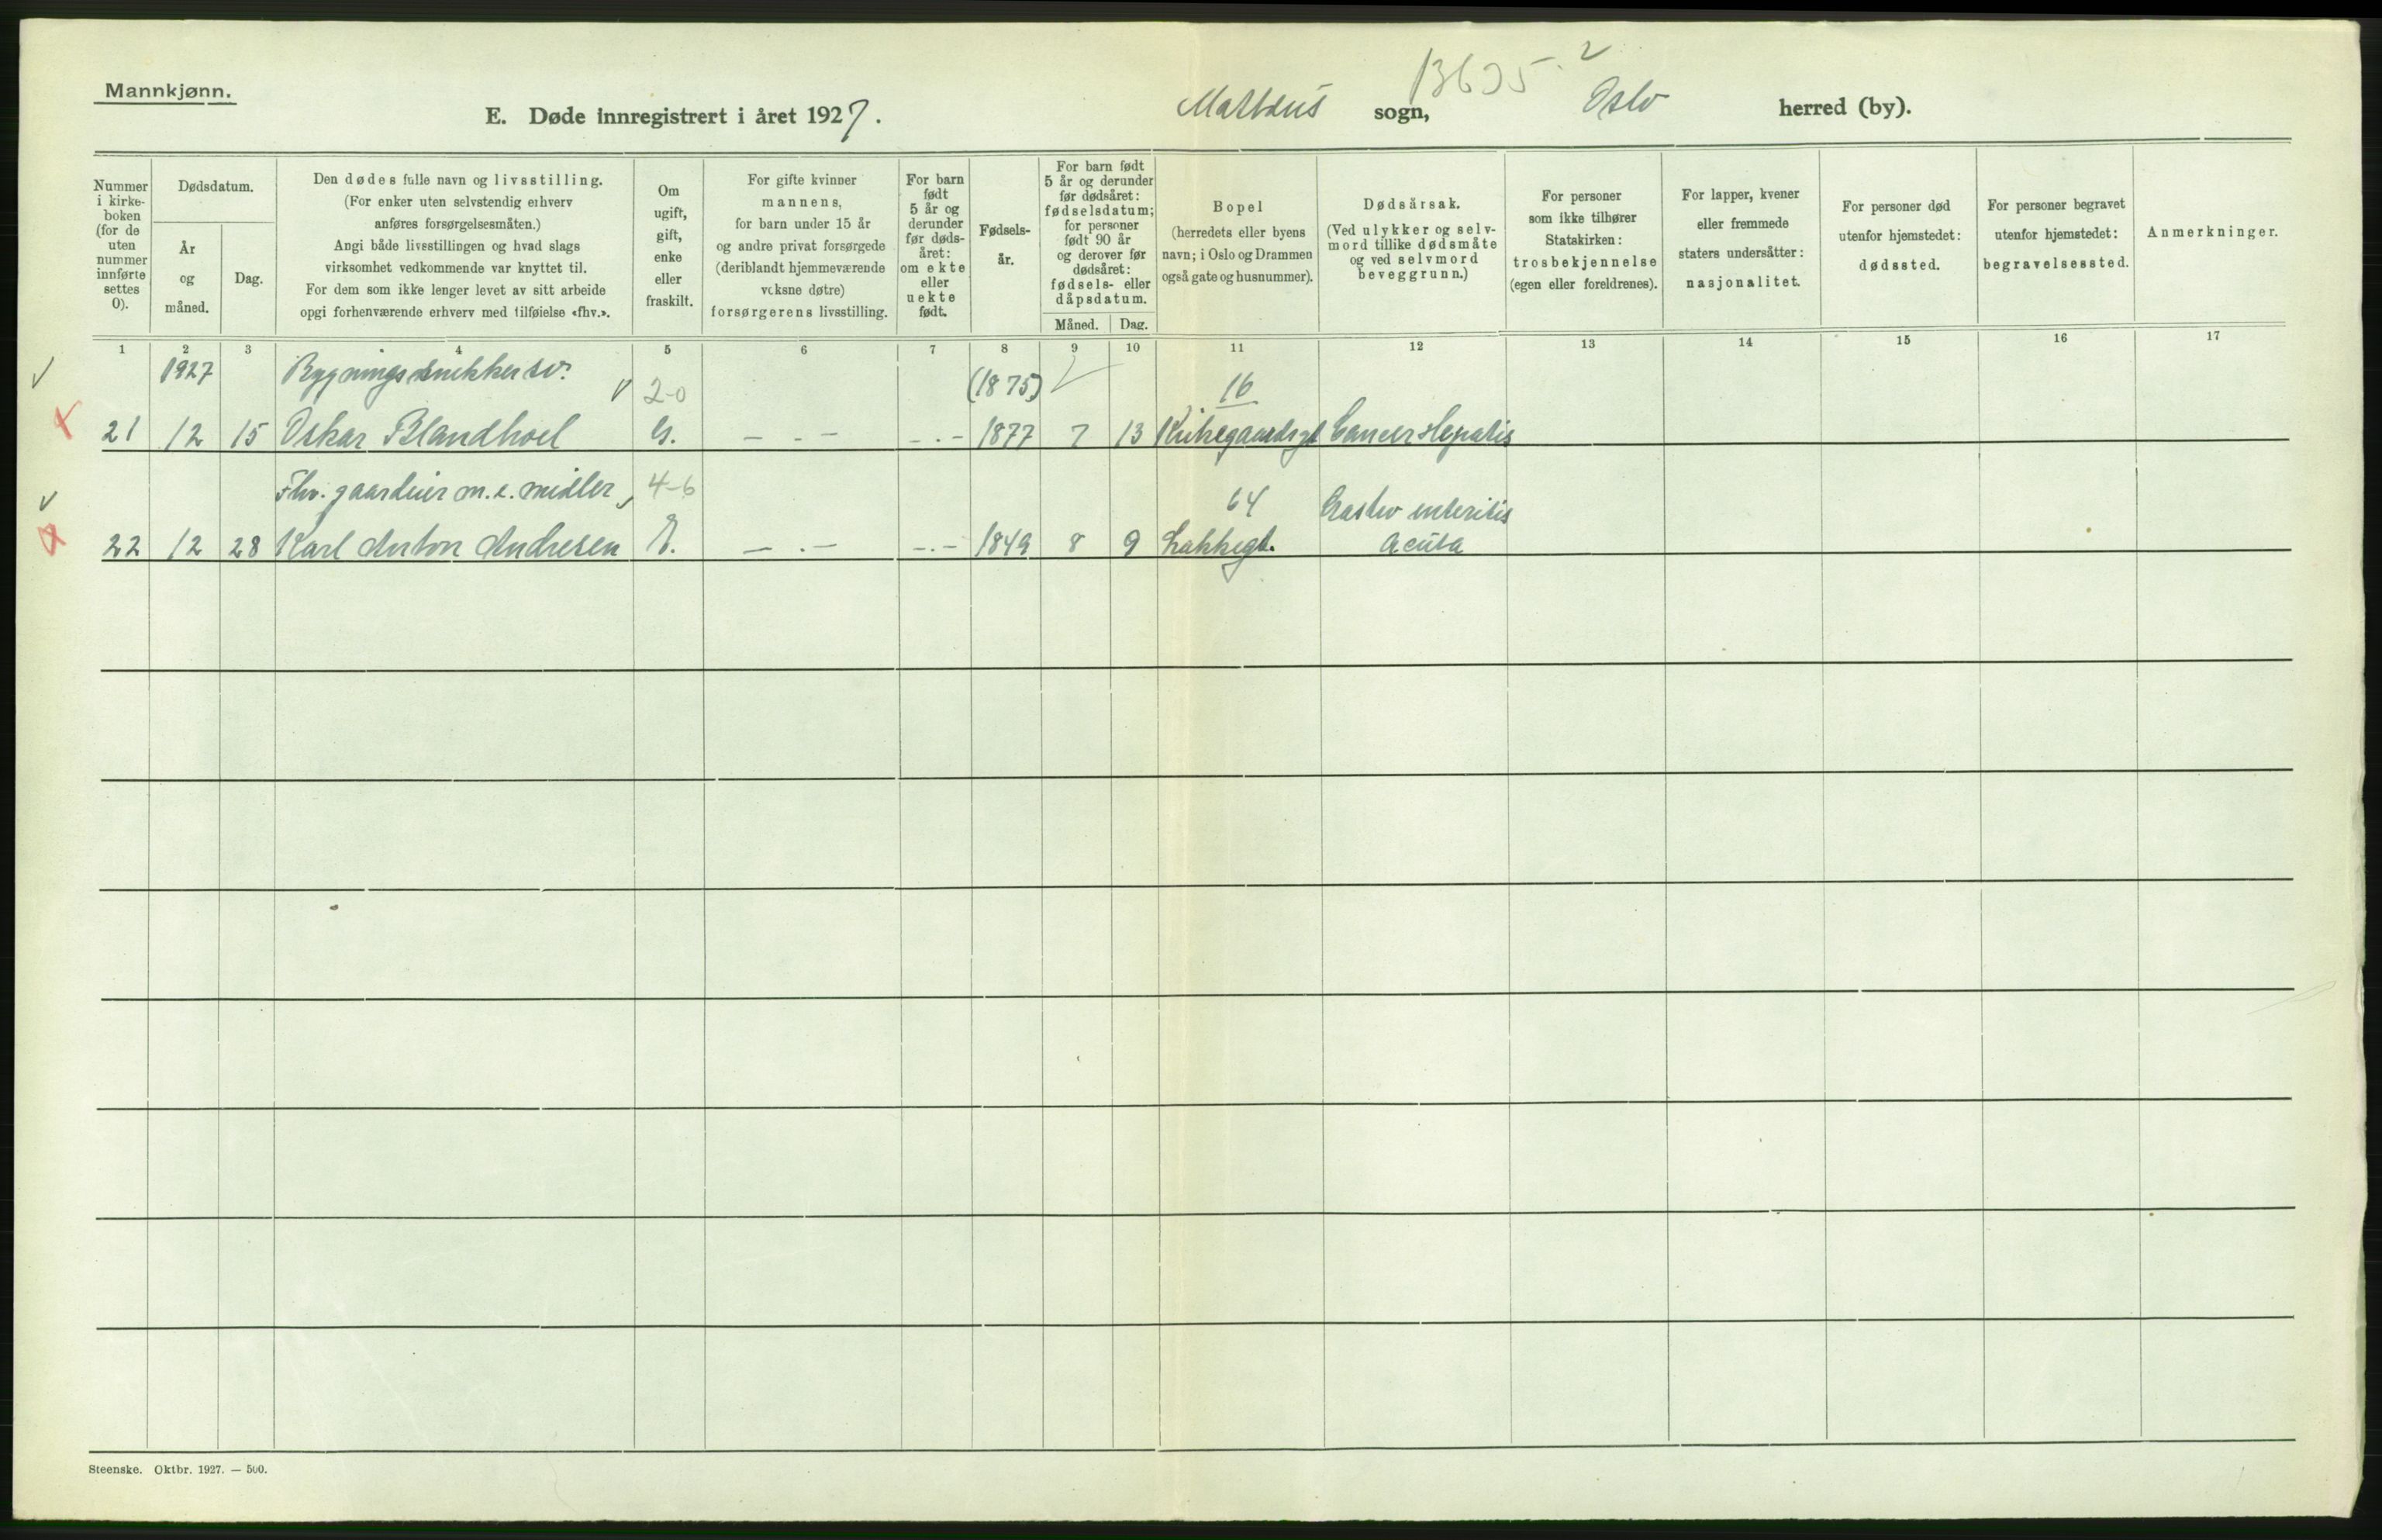 Mannkjønn.
E. Døde innregistrert i året 1927.
Mathæus sogn,
Oslo herred (by).
Nummer
i kirke-
boken
(for de
uten
nummer
innførte
settes
0).
Dødsdatum.
År
og
måned.
Dag.
Den dødes fulle navn og livsstilling.
(For enker uten selvstendig erhverv
anføres forsørgelsesmåten.)
Angi både livsstillingen og hvad slags
virksomhet vedkommende var knyttet til.
For dem som ikke lenger levet av sitt arbeide
opgi forhenværende erhverv med tilføielse «fhv.».
Om
ugift,
gift,
enke
eller
fraskilt.
For gifte kvinner
mannens,
for barn under 15 år
og andre privat forsørgede
(deriblandt hjemmeværende
voksne døtre)
forsørgerens livsstilling.
For barn
født
5 år og
derunder
før døds-
året:
om ekte
eller
uekte
født.
Fødsels-
år.
For barn født
5 år og derunder
før dødsåret:
fødselsdatum;
for personer
født 90 år
og derover før
dødsåret:
fødsels- eller
dåpsdatum.
Måned.
Dag.
Bopel
(herredets eller byens
navn; i Oslo og Drammen
også gate og husnummer).
Dødsårsak.
(Ved ulykker og selv-
mord tillike dødsmåte
og ved selvmord
beveggrunn.)
For personer
som ikke tilhører
Statskirken:
trosbekjennelse
(egen eller foreldrenes).
For lapper, kvener
eller fremmede
staters undersåtter:
nasjonalitet.
For personer død
utenfor hjemstedet:
dødssted.
For personer begravet
utenfor hjemstedet:
begravelsessted.
Anmerkninger.
1 2 3 4 5 6 7 8 9 10 11 12 13 14 15 16 17
1927 Bygningssnekkersv. 2-0 (1875) 16
21 12 15 Oskar Blandhoel G. — . — — . — 1877 7 13 Kirkegaardsgt Cancer Hepatis
Fhv. gaardeier m. e. midler 4-6 64 Gastro enteritis
22 12 28 Karl Anton Andresen E. — . — — . — 1849 8 9 Lakkegt. Acuta
Steenske. Oktbr. 1927. — 500.